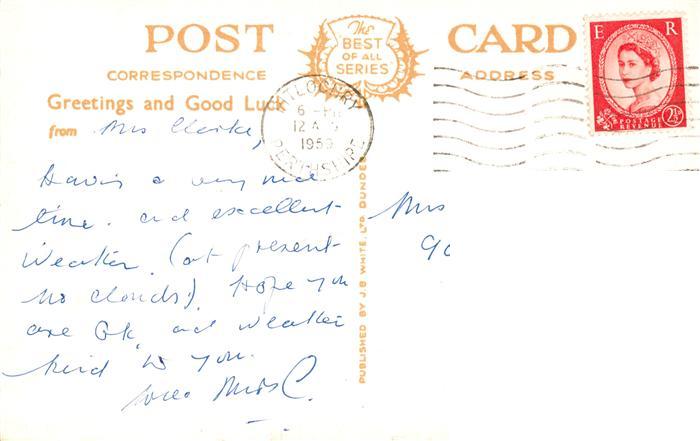 POST CARD
The
BEST
OF ALL
SERIES
CORRESPONDENCE
ADDRESS
Greetings and Good Luck
from Mrs Clarke,
PITLOCHRY
6 - PM
12 A
1959
PERTHSHIRE
E R
POSTAGE
REVENUE
2½
Having a very nice
time. and excellent
Weather. (at present
no clouds). Hope you
are Ok, and weather
kind to you.
Mrs C.
PUBLISHED BY J. B. WHITE, LTD. DUNDEE
Mrs